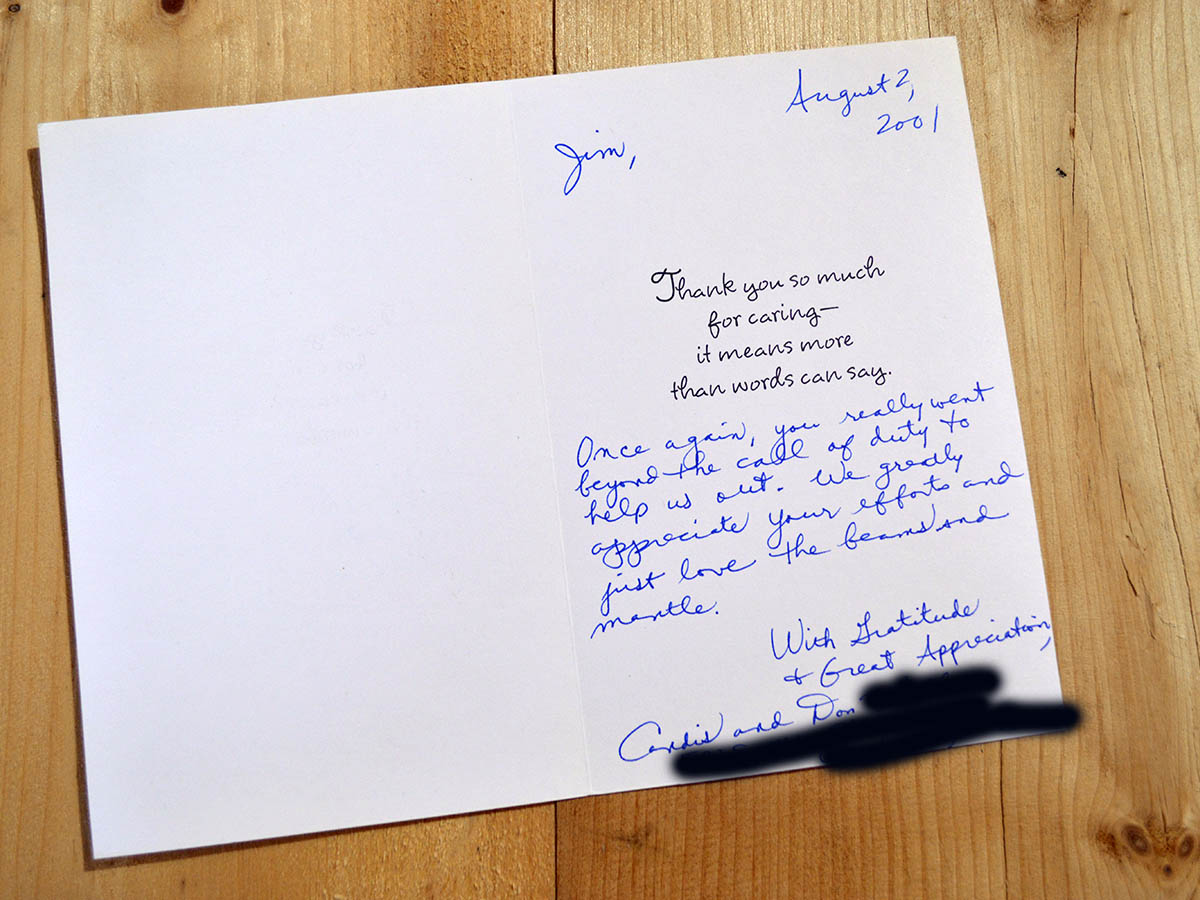 August 2,
2001
Jim,
Thank you so much
for caring—
it means more
than words can say.
Once again, you really went
beyond the call of duty to
help us out. We greatly
appreciate your efforts and
just love the beams and
mantle.
With Gratitude
& Great Appreciation,
Candis and Don